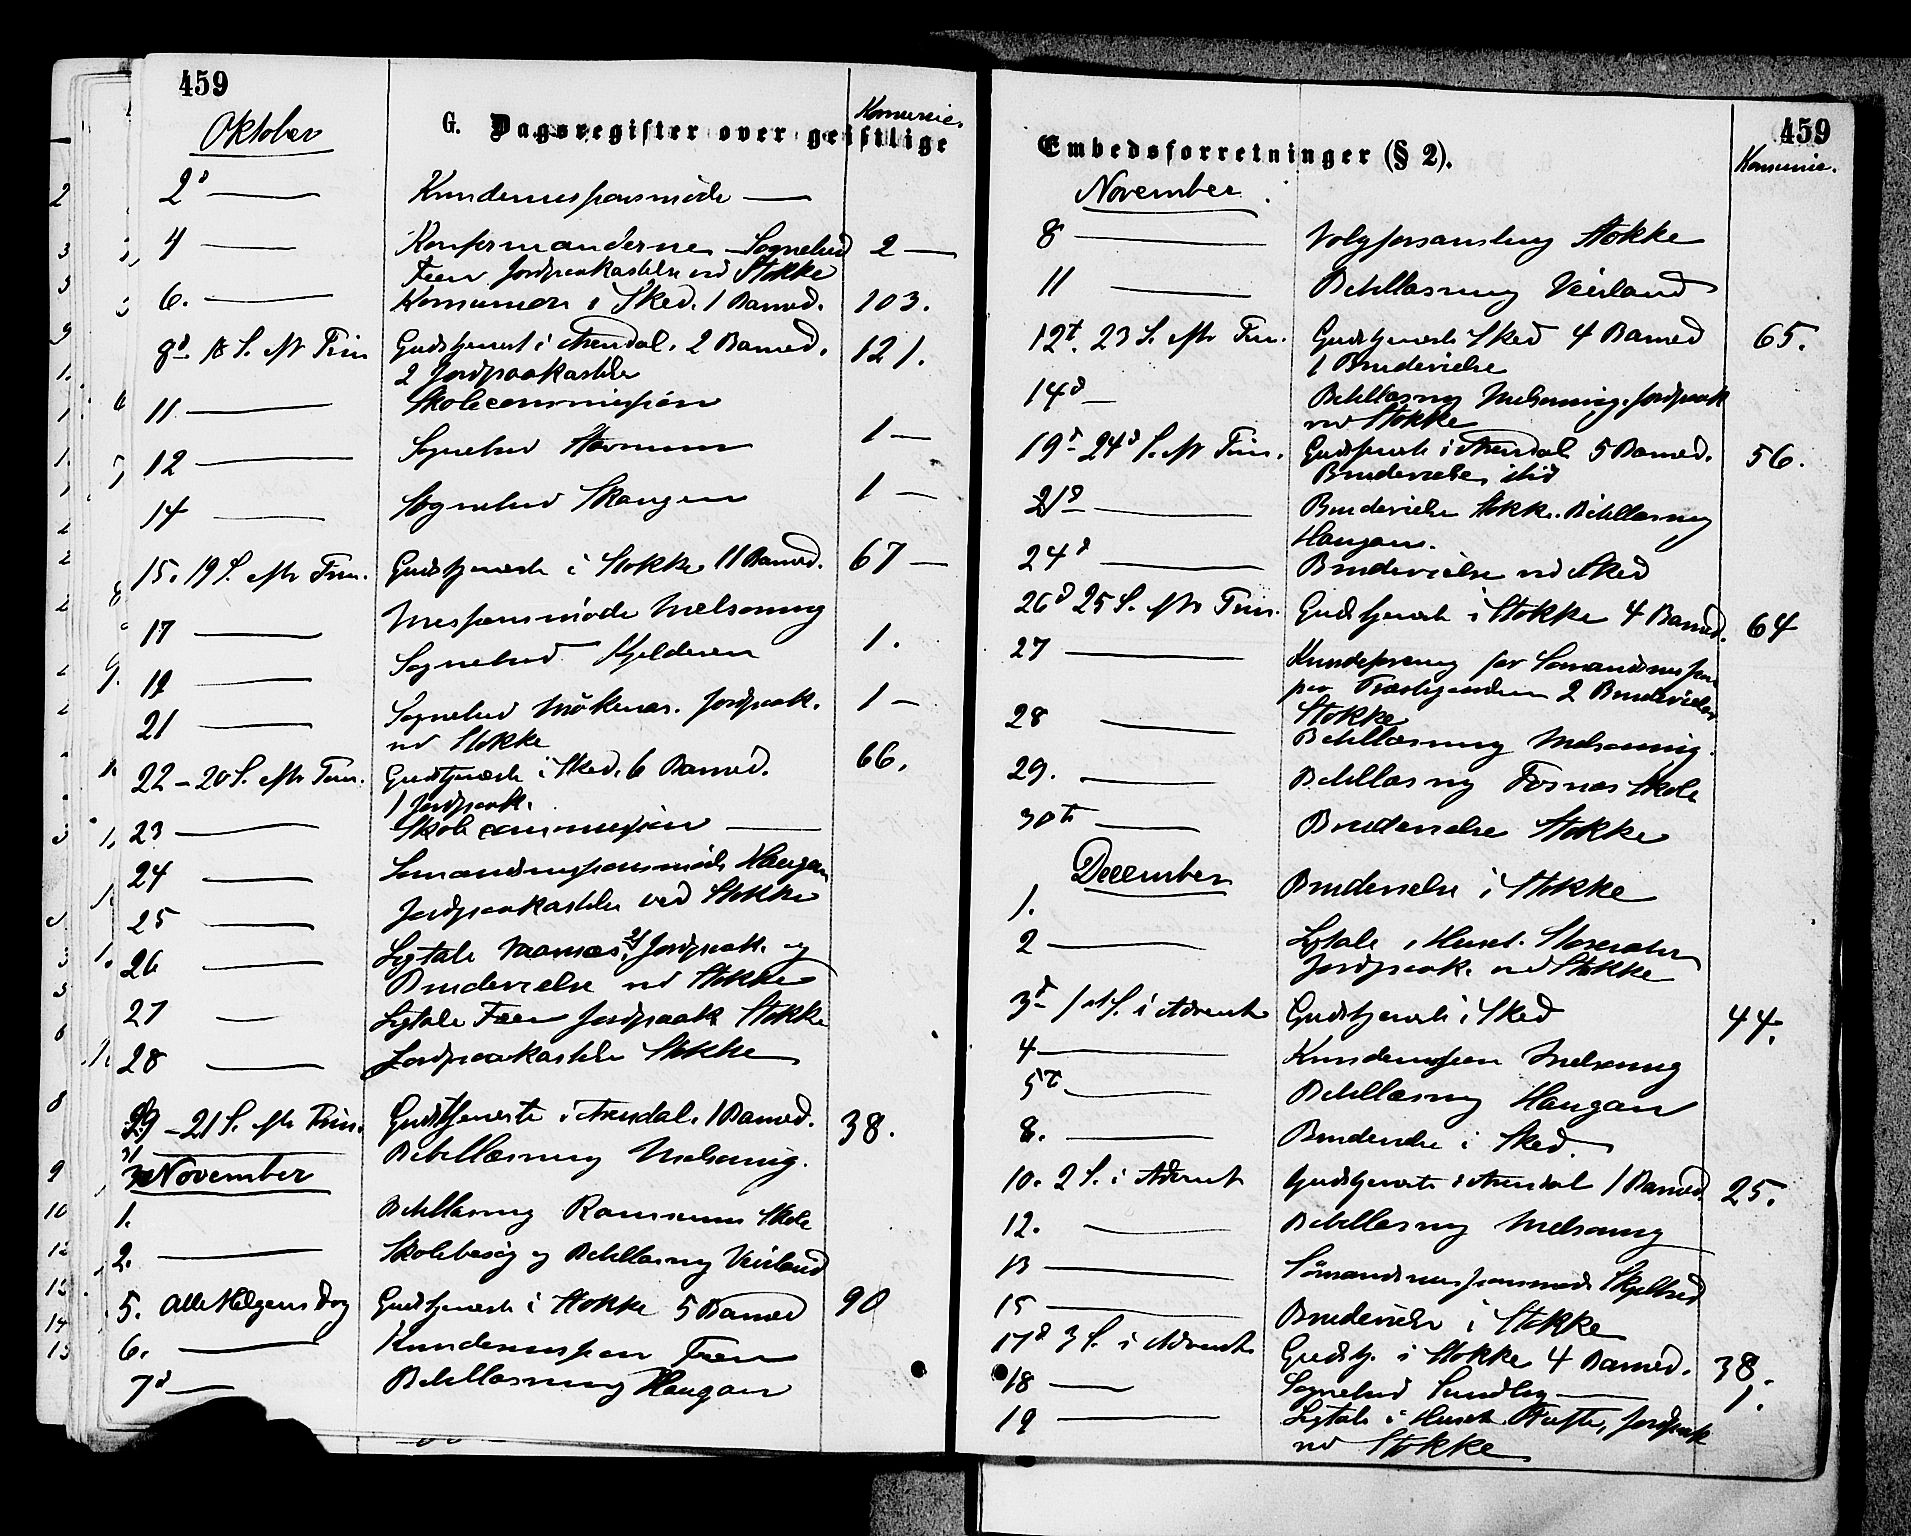 459
Oktober
G. Dagsregister over geistlige
Kommunic.
2d Kvindemissionsmøde
4 Konfirmanderne Sognebud 2
Feen Jordpaakastelse ved Stokke
6. Kommunion i Sked. 1 Barned. 103.
8d 18 S. eftr Trin Gudstjenest i Arendal. 2 Barned. 121.
2 Jordpaakastelse
11 Skolecommission
12 Sognebud 1
14 Sognebud Skaugen 1
15. 19 S. eftr Trin. Gudstjeneste i Stokke 11 Barned. 67
17 Missionsmøde Melsomvig
19 Sognebud 1.
21 Sognebud Jordpaak. 1
ved Stokke
22 - 20 S. eftr Trin. Gudstjeneste i Sked. 6 Barned. 66.
1 Jordpaak.
23 Skolecommission
24 Sømandsmissionsmøde Haugan
25 Jordpaakastelse ved Stokke
26 Ligtale Jordpaak. og
Brudevielse ved Stokke
27 Ligtale Feen Jordpaak Stokke
28 Jordpaakastelse Stokke
29 - 21 S. eftr Trin. Gudstjeneste i Arendal. 1 Barned. 38.
31 Bibellæsning Melsomvig.
November
1. Bibellæsning Ramsum Skole
2. Skolebesøg og Bibellæsning Veierland
5. Alle Helgens Dag Gudstjeneste i Stokke 5 Barned 90
6. Kvindemission Feen
7d Bibellæsning Haugan
459
Embedsforretninger (§ 2).
Kommunic.
November
8 Valgforsamling Stokke
11 Bibellæsning Veierland
12t. 23 S. eftr Trin. Gudstjeneste Sked 4 Barned 65.
1 Brudevielse
14d Bibellæsning Melsomvig. Jordpaak
ved Stokke
19d 24d S. eftr Trin. Gudstjeneste i Arendal 5 Barned. 56.
Brudevielse
21d Brudevielse Stokke. Bibellæsning
Haugan.
24d Brudevielse ved Sked
26d 25 S. eftr Trin. Gudstjeneste i Stokke 4 Barned. 64
27 Kvindeforening for Sømandsmission
paa Præstegaarden 2 Brudevielser
Stokke
28 Bibellæsning Melsomvig.
29. Bibellæsning Fosnæs Skole
30te Brudevielse Stokke
December
1. Brudevielse i Stokke
2 Ligtale i Huset.
Jordpaak. ved Stokke
3d 1st S. i Advent Gudstjeneste i Sked 44.
4 Kvindemission Melsomvig
5te Bibellæsning Haugan
8. Brudevielse i Sked.
10. 2 S. i Advent Gudstjeneste i Arendal 1 Barned. 25.
12. Bibellæsning Melsomvig
13 Sømandsmissionsmøde Skjellsrød
15 Brudevielse i Stokke
17d 3 S. i Advent Gudstj. i Stokke 4 Barned. 38.
18 Sognebud Sundby 1.
19 Ligtale i Huset Jordpaak
ved Stokke